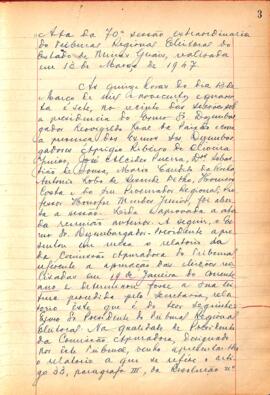 3
Ata da 70ª sessão extraordinaria
do Tribunal Regional Eleitoral do
Estado de Minas Gerais, realizada
em 12 de Março de 1947.
As quinze horas do dia
Março de mil e novecentos e quaren-
ta e sete, no recinto das sessões sob
a presidencia do Exmo. Sr. Desembar-
gador Leal da Paixão e com
a presença dos Exmos. srs. Desembar-
gadores Aprigio Ribeiro de Oliveira
Junior, José Alcides Pereira, Drs.
de Souza, Marcio
Antonio
Costa e do sr. Procurador Regional,
Onofre Mendes Junior, foi aber-
ta a sessão. Lida e aprovada a ata
da sessão anterior. A seguir, o Ex-
mo. sr. Desembargador-Presidente apre-
sentou em mesa o relatorio da
da Comissão Apuradora do Tribunal
referente a apuração das eleições re-
alizadas em 19 de Janeiro do corrente
ano e determinou fosse a sua lei-
tura procedida pela Secretaria, rela-
torio este que é do teor seguinte:
Exmo. Sr. Presidente do Tribunal Regional
Eleitoral. Na qualidade de Presidente
da Comissão Apuradora, designado
por este Tribunal, venho apresentar-lhe
o relatorio a que se refere o artigo
33, paragrafo III, da Resolução nº